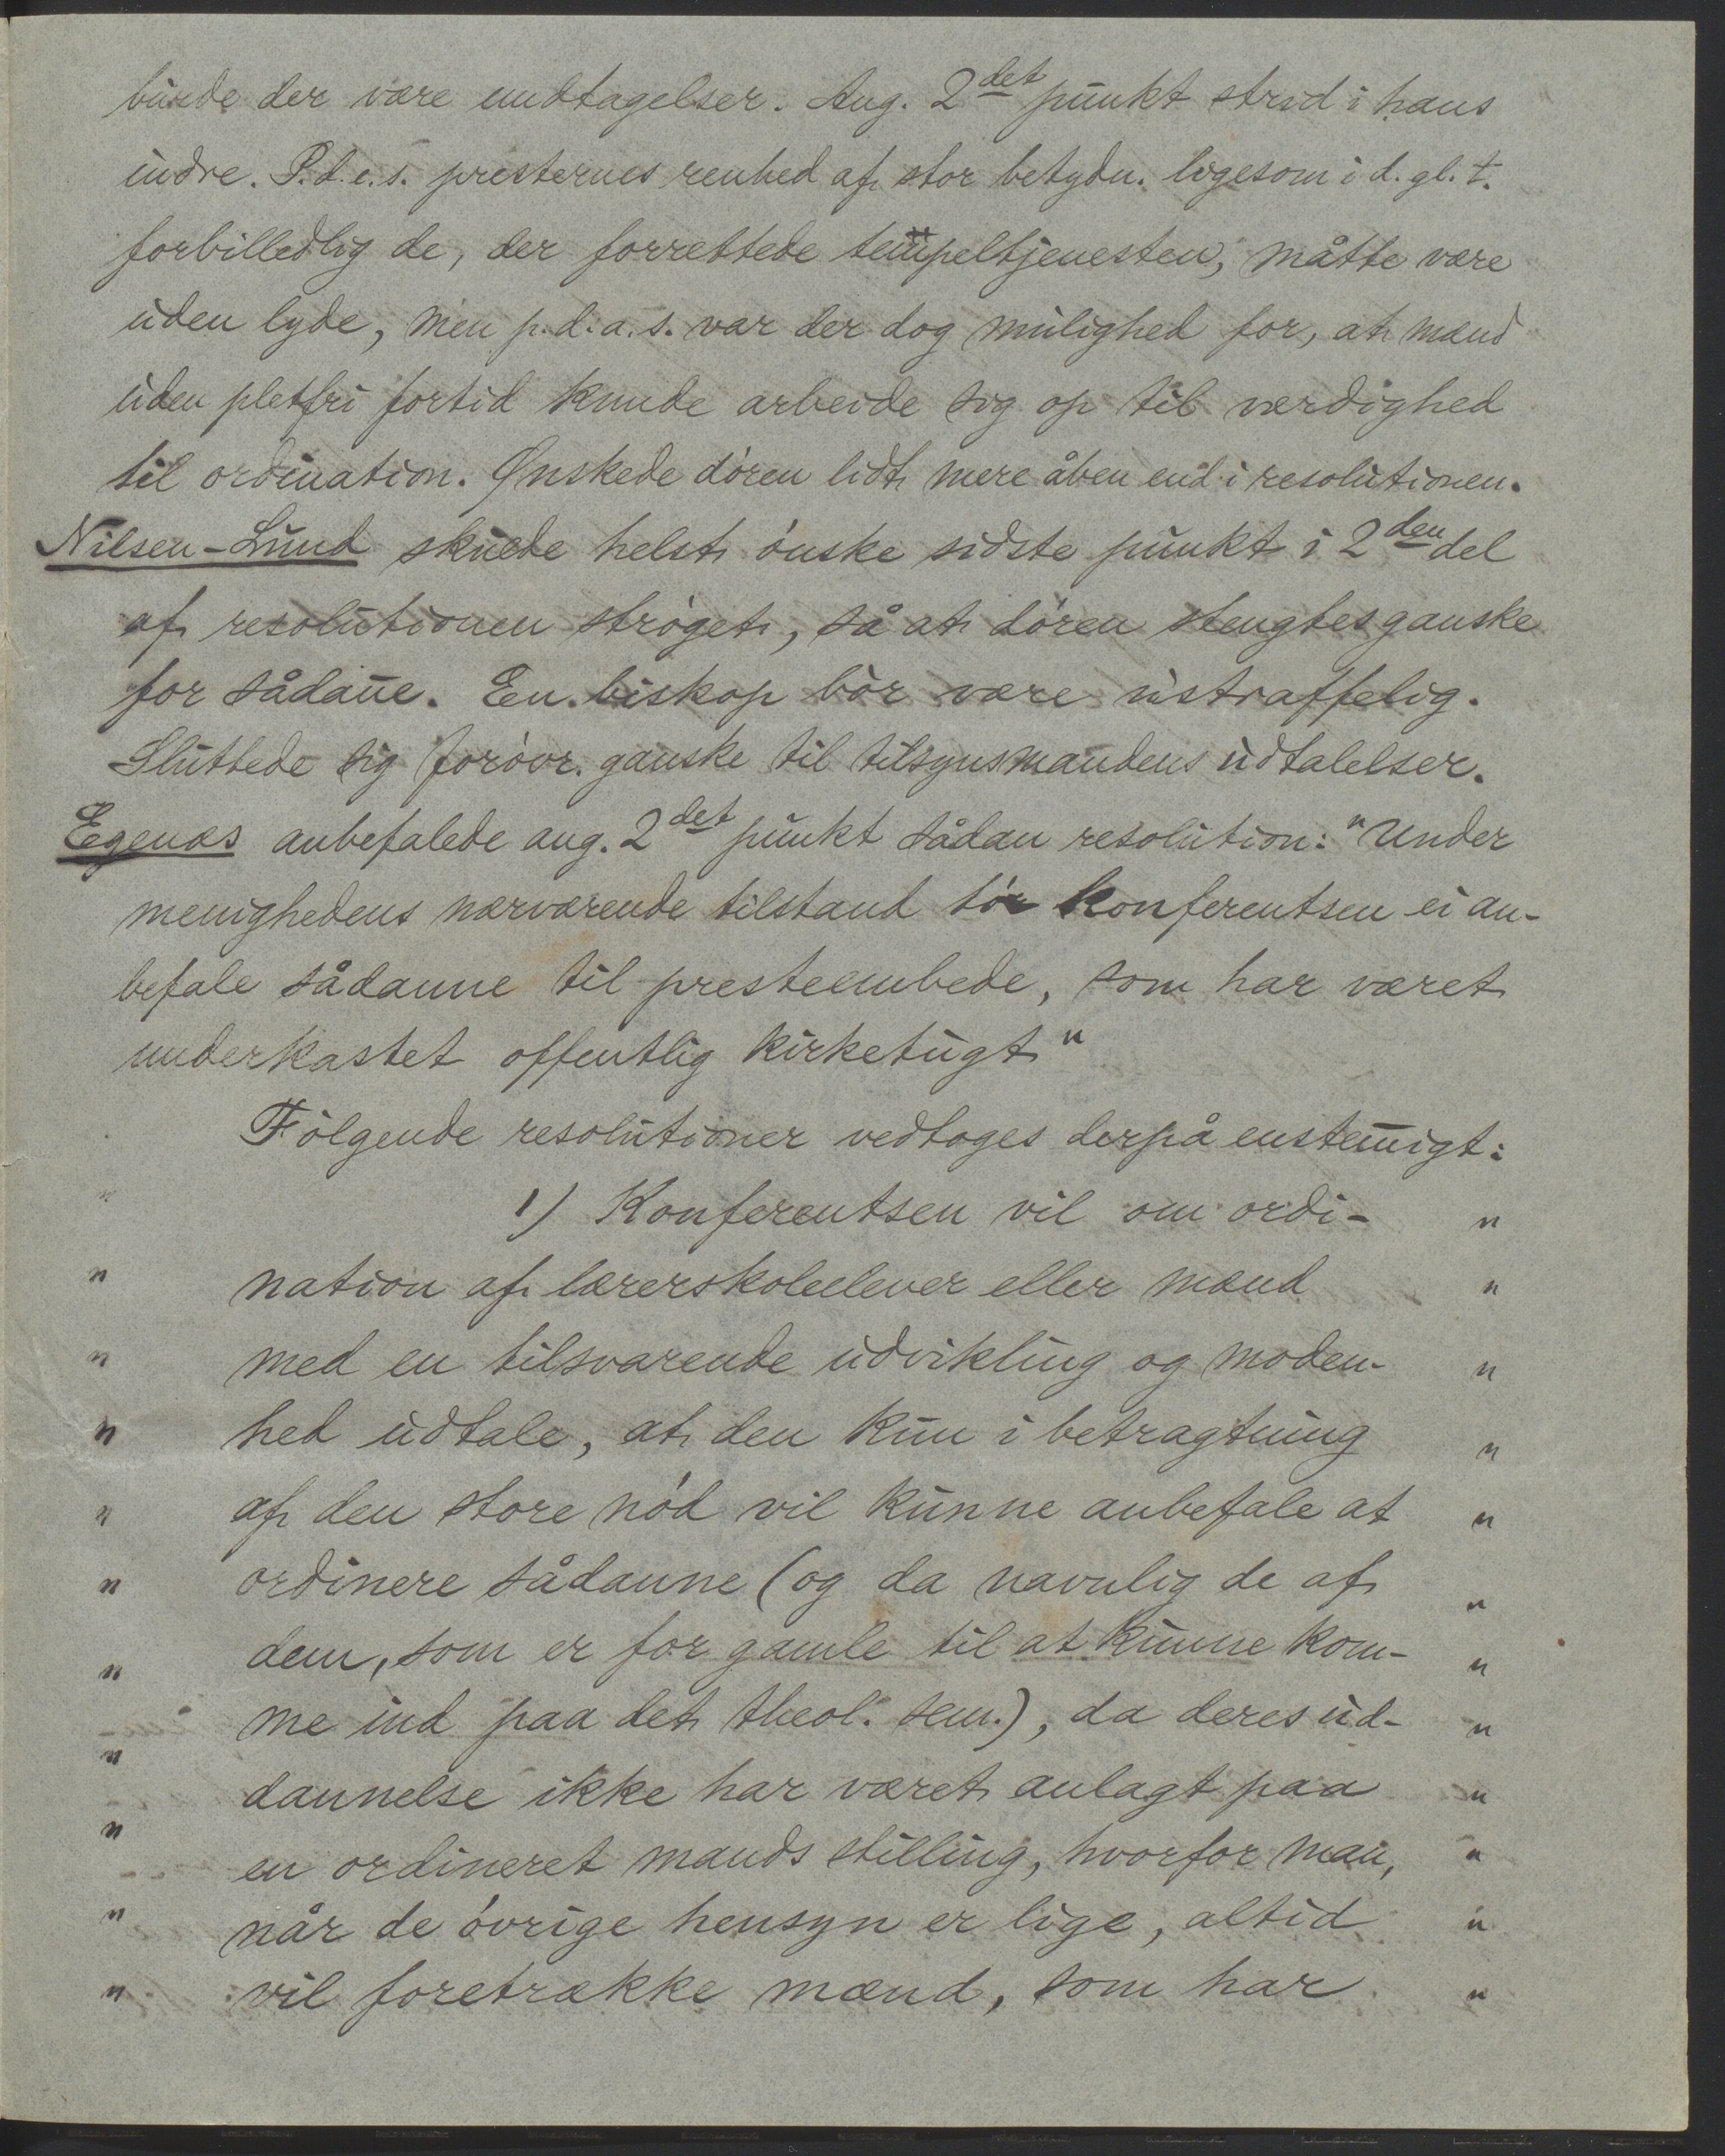 burde der være undtagelser. Ang. 2det punkt strid i hans
indre. P.d.e.s. presternes renhed af stor betydn. ligesom i d. gl. t.
forbilledlig de, der forrettede tempeltjenesten, måtte være
uden lyde, men p.d.a.s. var der dog mulighed for, at mænd
uden pletfri fortid kunde arbeide sig op til værdighed
til ordination. Ønskede døren lidt mere åben end i resolutionen.
Nilsen-Lund skulde helst ønske sidste punkt i 2den del
af resolutionen strøget, så at døren stengtes ganske
for sådañe. En biskop bør være ustraffelig.
Sluttede sig forøvr. ganske til tilsynsmandens udtalelser.
Egenæs anbefalede ang. 2det punkt sådan resolution: "Under
menighedens nærværende tilstand tør konferentsen ei an-
befale sådanne til presteembede, som har været
underkastet offentlig kirketugt"
Følgende resolutioner vedtoges derpå enstem̄igt:
1) Konferentsen vil om ordi- "
" nation af lærerskoleelever eller mænd "
" med en tilsvarende udvikling og moden- "
" hed udtale, at den kun i betragtning "
" af den store nød vil kunne anbefale at "
" ordinere sådanne (og da navnlig de af "
" dem, som er for gamle til at kunne kom- "
" me ind paa det theol. sem.), da deres ud- "
" dannelse ikke har været anlagt paa "
" en ordineret mands stilling, hvorfor man, "
" når de øvrige hensyn er lige, altid "
" vil foretrække mænd, som har "